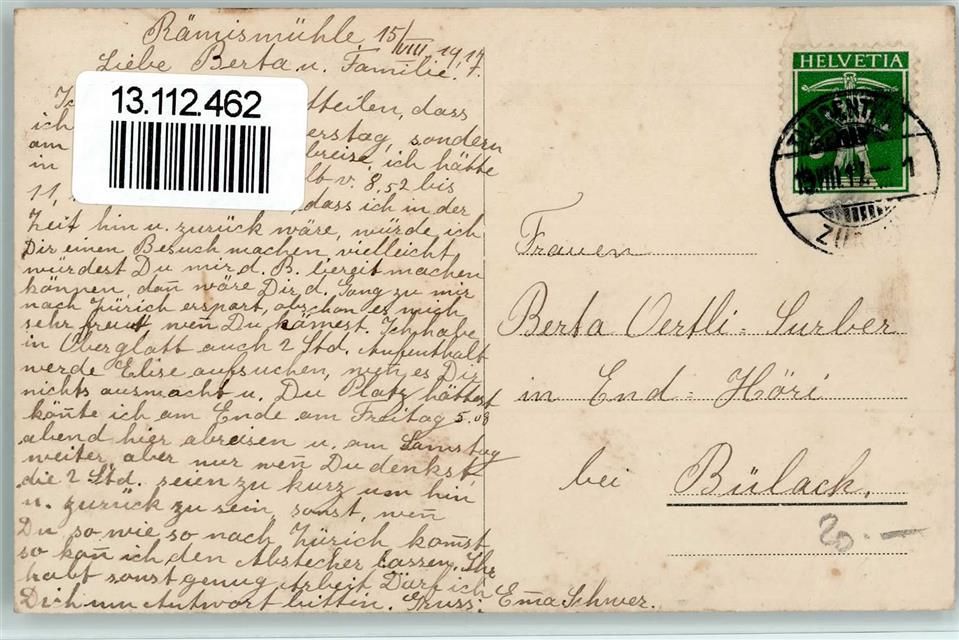 Rämismühle 15/VIII 1917.
Liebe Berta u. Familie.
13.112.462
tteilen, dass
ich erstag, sondern
am breise, ich hätte
in lb v. 8,52 bis
11, dass ich in der
Zeit hin u. zurück wäre, würde ich
Dir einen Besuch machen, vielleicht
würdest Du mir d. B. bereit machen
können, dañ wäre Dir d. Gang zu mir
nach Zürich erspart, obschon es mich
sehr freut, weñ Du kämest. Ich habe
in Oberglatt auch 2 Std. Aufenthalt
werde Elise aufsuchen, weñ es Dir
nichts ausmacht u. Du Platz hättest
köñte ich am Ende am Freitag 5.08
abend hier abreisen u. am Samstag
weiter, aber nur weñ Du denkst,
die 2 Std. seien zu kurz um hin
u. zurück zu sein, sonst, weñ
Du so wie so nach Zürich komst
so kañ ich den Abstecher lassen. Ihr
habt sonst genug Arbeit Darf ich
Dich um Antwort bitten. Gruss: Em̄a Schwer.
HELVETIA
Frauen
Berta Oertli-Surber
in End-Höri
bei Bülach.
20.-